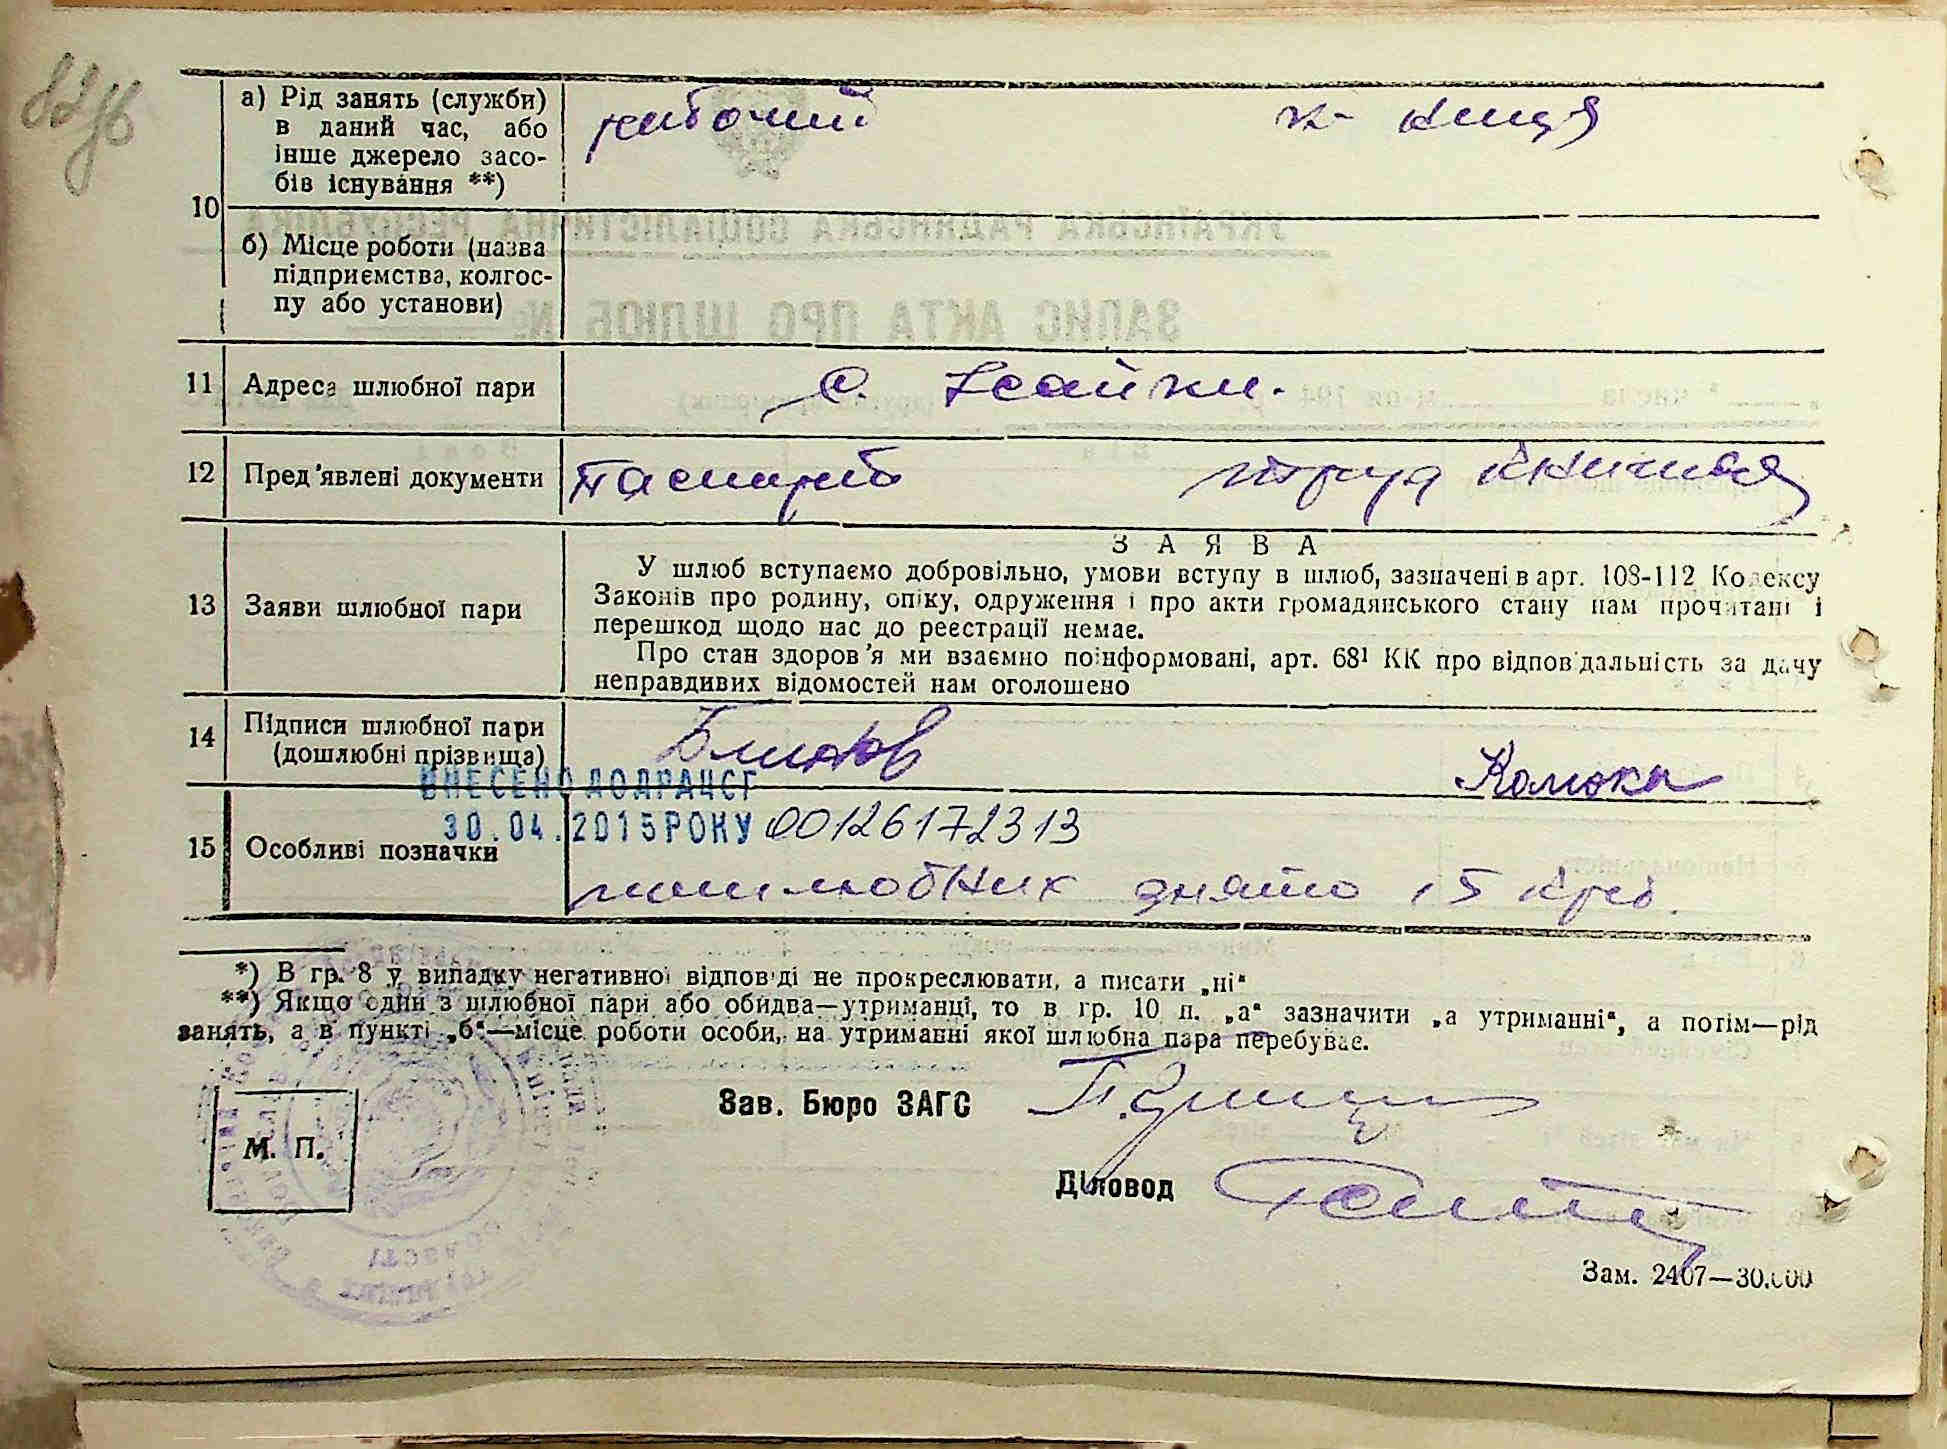 82зв
10
а) Рід занять (служби)
в даний час, або
інше джерело засо-
бів існування **)
рабочий
к-ниця
б) Місце роботи (назва
підприємства, колгос-
пу або установи)
11 Адреса шлюбної пари
с. Усайки.
12 Пред'явлені документи
Паспорт
труд книжка
13 Заяви шлюбної пари
ЗАЯВА
У шлюб вступаємо добровільно, умови вступу в шлюб, зазначені в арт. 108-112 Кодексу
Законів про родину, опіку, одруження і про акти громадянського стану нам прочитані і
перешкод щодо нас до реєстрації немає.
Про стан здоров'я ми взаємно поінформовані, арт. 68¹ КК про відповідальність за дачу
неправдивих відомостей нам оголошено
14 Підписи шлюбної пари
(дошлюбні прізвища)
Блинов
Колюка
ВНЕСЕНО ДО ДРАЦСГ
30.04.2015 РОКУ 00126172313
15 Особливі позначки
пошлюбних знято 15 крб.
*) В гр. 8 у випадку негативної відповіді не прокреслювати, а писати „ні“
**) Якщо один з шлюбної пари або обидва—утриманці, то в гр. 10 п. „а“ зазначити „а утриманні“, а потім—рід
занять, а в пункті „б“—місце роботи особи, на утриманні якої шлюбна пара перебуває.
М. П.
Зав. Бюро ЗАГС
Діловод
Зам. 2407—30.000